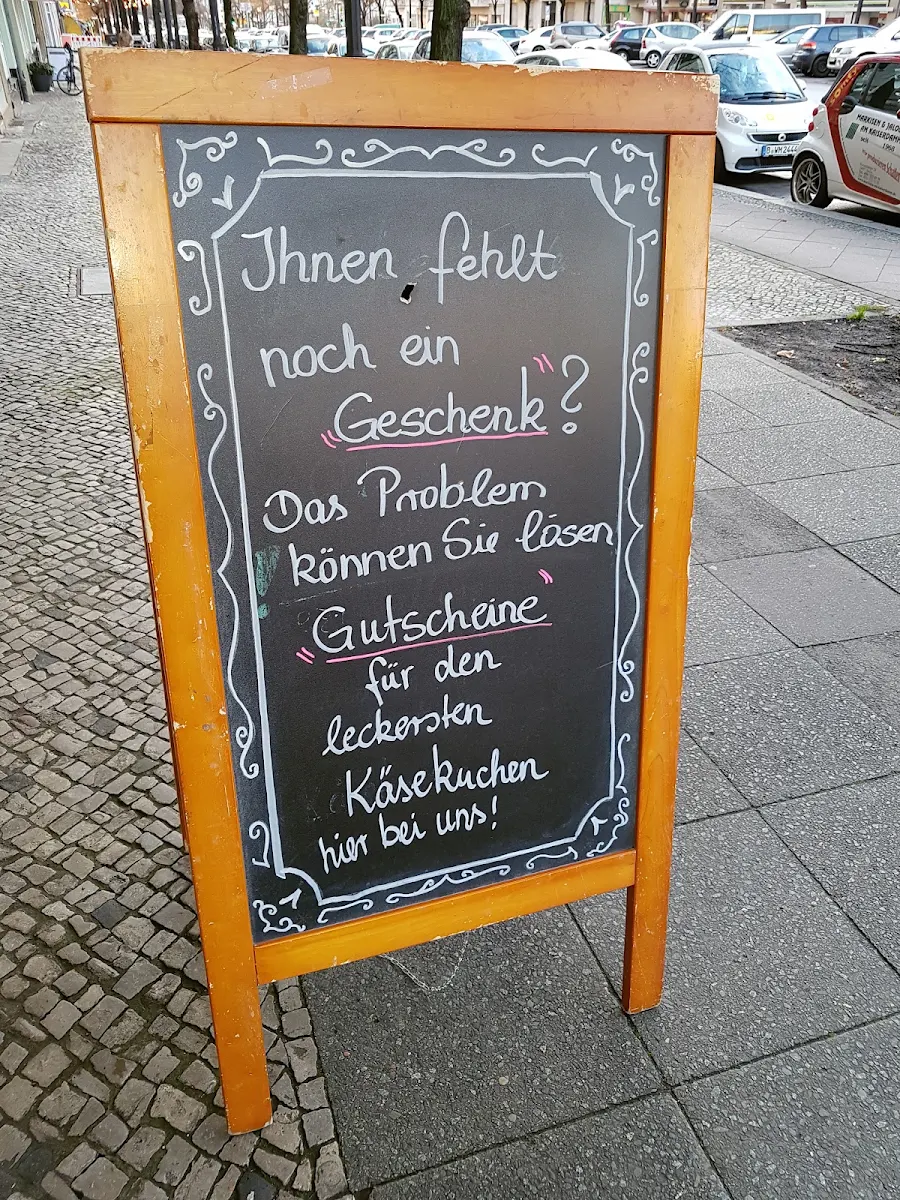 Ihnen fehlt
noch ein
"Geschenk"?
Das Problem
können Sie lösen
"Gutscheine"
für den
leckersten
Käsekuchen
hier bei uns!
B WM 2444
MARKISEN & JALOU
AM KAISERDAMM
SEIT
1968